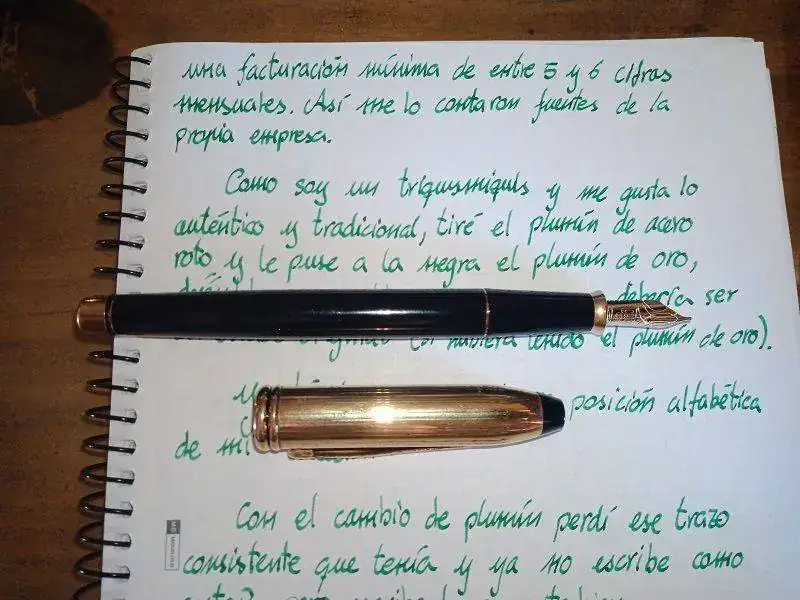 una facturación mínima de entre 5 y 6 cifras
mensuales. Así me lo contaron fuentes de la
propia empresa.
Como soy un triquismiquis y me gusta lo
auténtico y tradicional, tiré el plumín de acero
roto y le puse a la negra el plumín de oro,
debería ser
el plumín de oro).
posición alfabética
de mi
Con el cambio de plumín perdí ese trazo
consistente que tenía y ya no escribe como